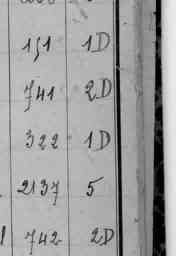 151 1D
741 2D
322 1D
2137 5
742 2D